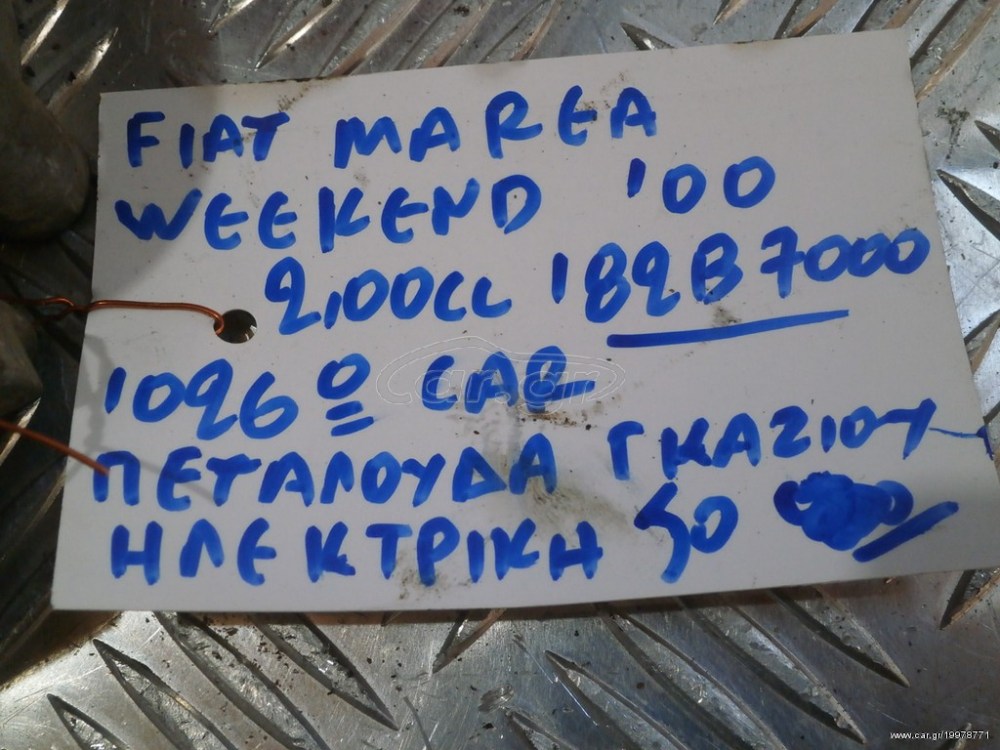 FIAT MAREA
WEEKEND '00
2,00CC 182B7000
1026º CAR
ΠΕΤΑΛΟΥΔΑ ΓΚΑΖΙΟΥ
ΗΛΕΚΤΡΙΚΗ 50
www.car.gr/19978771